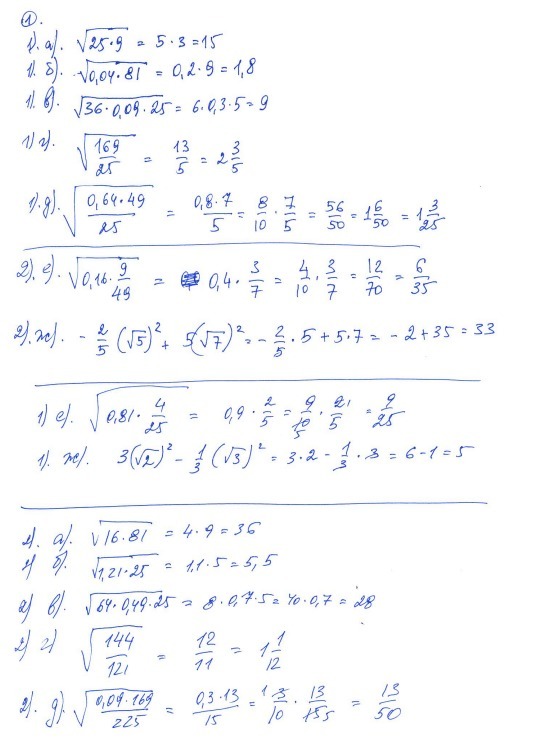 ①.
1). а). √(25·9) = 5·3=15
1). б). √(0,04·81) = 0,2·9=1,8
1). в). √(36·0,09·25) = 6·0,3·5=9
1) г). √(169/25) = 13/5 = 2 3/5
1). д). √(0,64·49/25) = 0,8·7/5 = 8/10 · 7/5 = 56/50 = 1 6/50 = 1 3/25
2). е). √(0,16·9/49) = 0,4·3/7 = 4/10 · 3/7 = 12/70 = 6/35
2). ж). -2/5 (√5)² + 5(√7)² = -2/5 · 5+5·7= -2+35=33
1) е). √(0,81·4/25) = 0,9·2/5 = 9/10 5 · 2 1/5 = 9/25
1). ж). 3(√2)² - 1/3 (√3)² = 3·2 - 1/3 · 3 = 6-1=5
2). а). √(16·81) = 4·9=36
2) б). √(1,21·25) = 1,1·5=5,5
2) в). √(64·0,49·25) = 8·0,7·5=40·0,7=28
2) г) √(144/121) = 12/11 = 1 1/12
2). д). √(0,09·169/225) = 0,3·13/15 = 1 3/10 · 13/15 5 = 13/50